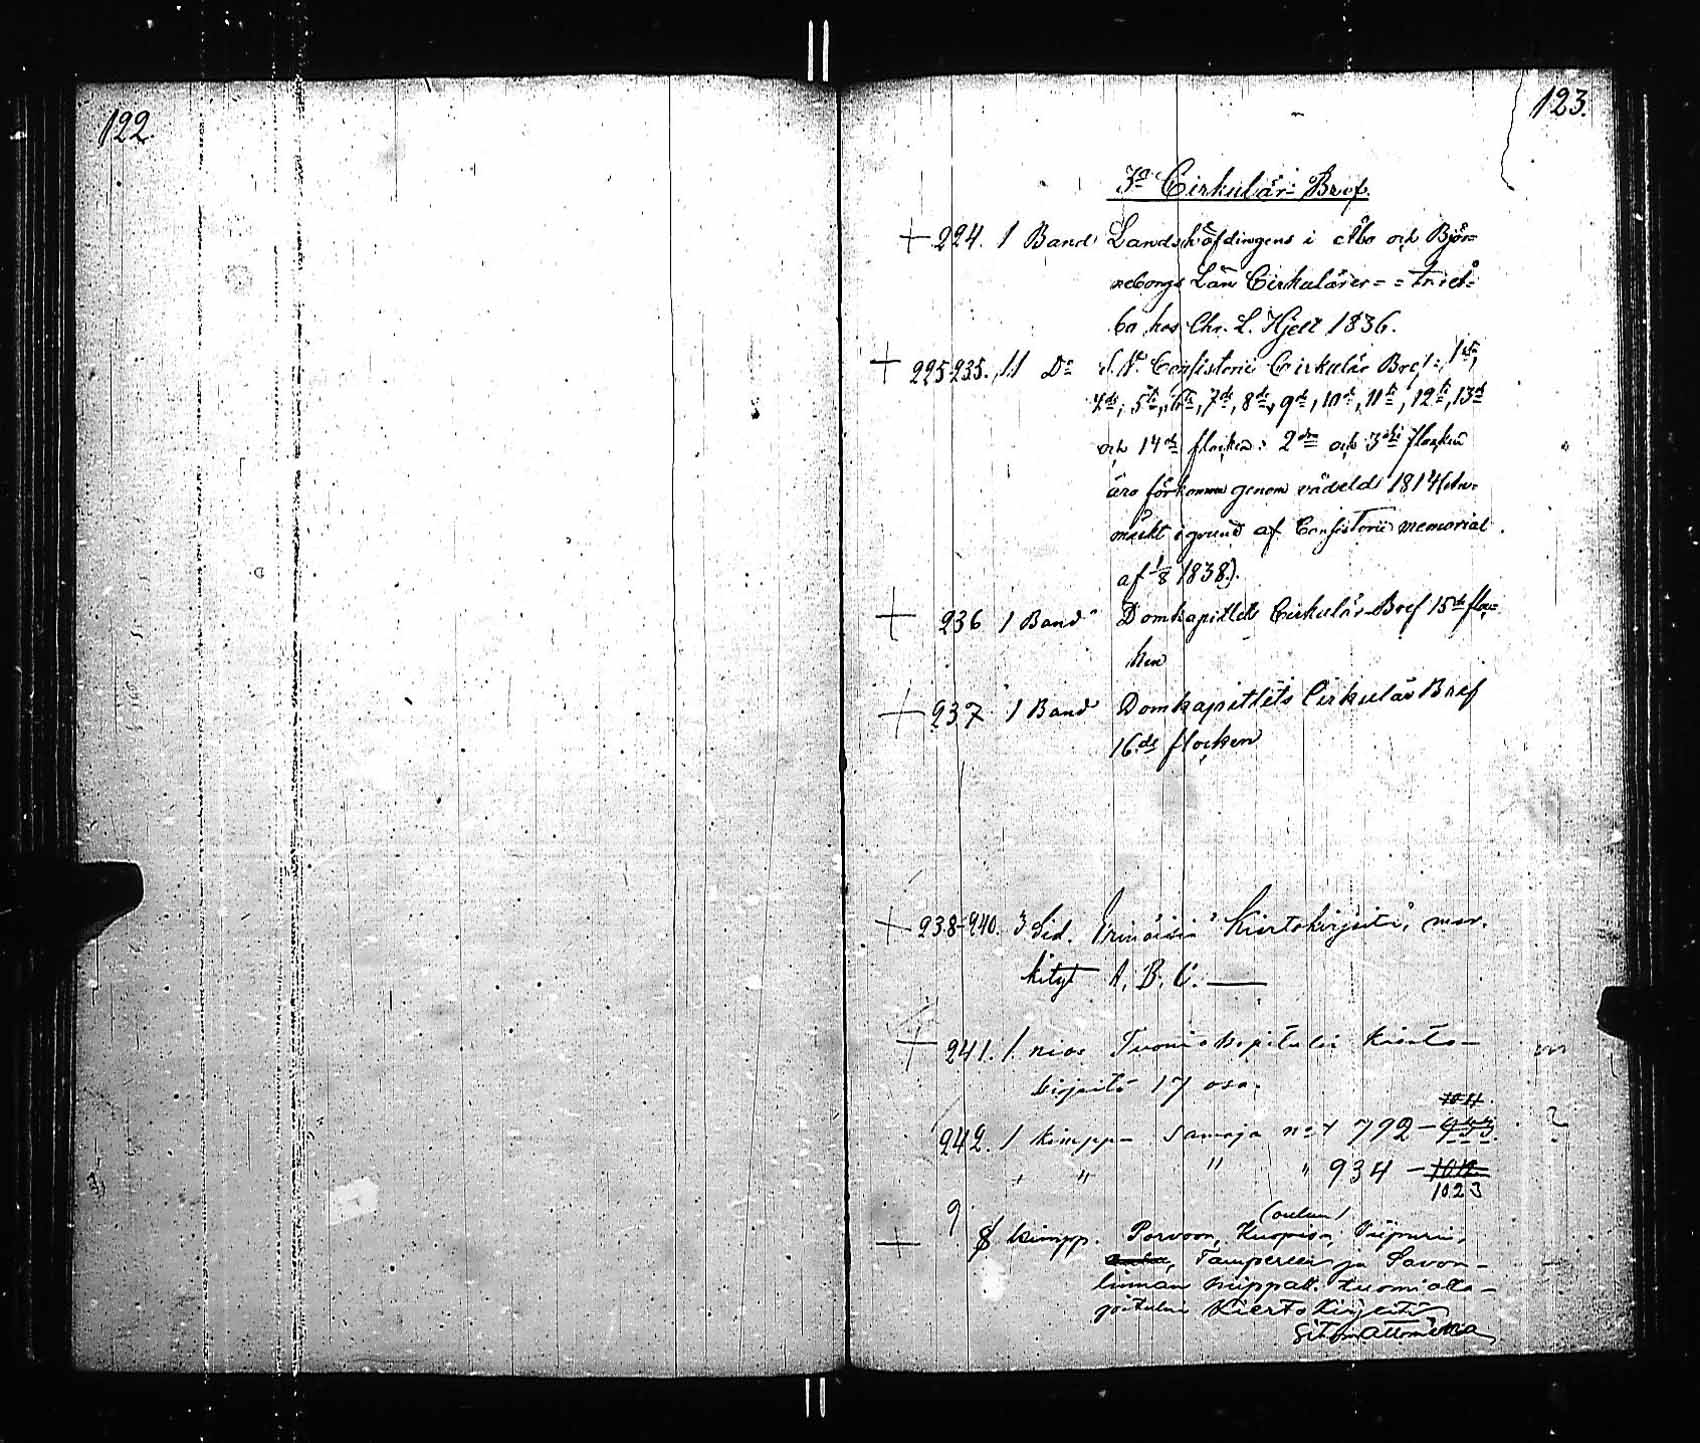 122.
123.
3o Cirkulär-Bref.
+ 224. 1 Band Landshöfdingens i Åbo och Björ=
neborgs Län Cirkulärer = = tryck=
ta hos Chr. L. Hjelt 1836.
+ 225-235. 11 Do Consistorii Cirkulär Bref: 1sta,
4de, 5te, 6te, 7de, 8de, 9de, 10de, 11te, 12te, 13de
och 14de flocken: 2dra och 3dje flocken
äro förkomna genom vådeld 1814 (An=
märkt i grund af Consistorii memorial
af 1/8 1838).
+ 236 1 Band Domkapitlets Cirkulär-Bref 15de floc=
ken
+ 237 1 Band Domkapitlets Cirkulär Bref
16de flocken
+ 238-240. 3 Sid. Erinäisiä Kiertokirjeitä, mer.
kityt A. B. C. —
+ 241. 1. nios Tuomiokapitulin kierto-
kirjeitä 17 osa.
1011.
242. 1 kimppu Samoja n:ot 792 - 933.
" " " " 934 -
1023
9 (oulun)
+ 8 kimpp. Porvoon, Kuopion, Viipurin,
Tampereen ja Savon-
linnan hiippak. tuomioka-
pitulin Kiertokirjeitä
Sitomattomina